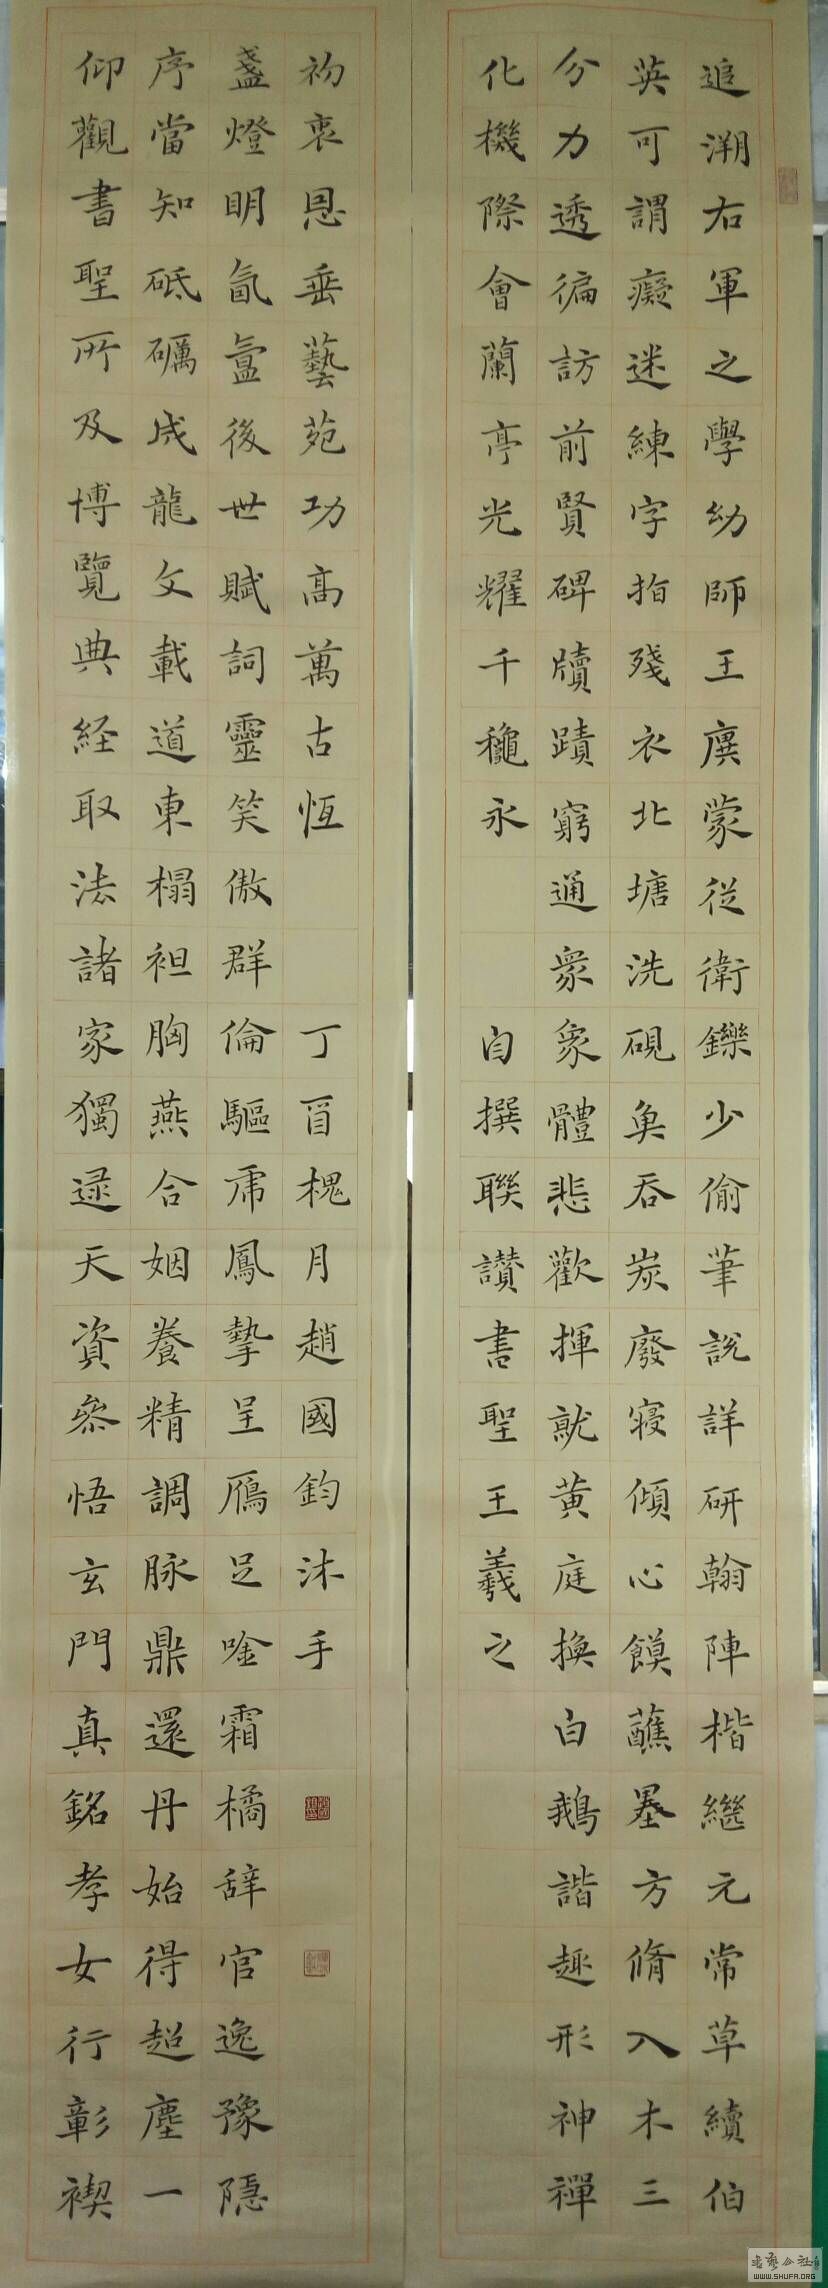 追溯右軍之學幼師王廙蒙從衛鑠少偷筆說詳研翰陣楷繼元常草續伯
英可謂癡迷練字指殘衣北塘洗硯魚吞炭廢寢傾心饃蘸墨方脩入木三
分力透徧訪前賢碑牘蹟窮通衆象體悲歡揮就黄庭換白鵝諧趣形神禪
化機際會蘭亭光耀千龝永 自撰聯讃書聖王羲之
仰觀書聖所及博覽典経取法諸家獨逯天資叅悟玄門真銘孝女行彰禊
序當知砥礪成龍文載道東榻袒胸燕合姻養精調脉鼎還丹始得超塵一
盞燈明氤氳後世賦詞靈笑傲群倫驅虎鳳摯呈鴈足唫霜橘辞官逸豫隠
初衷恩垂藝苑功高萬古恆 丁酉槐月趙國鈞沐手
WWW.SHUFA.ORG